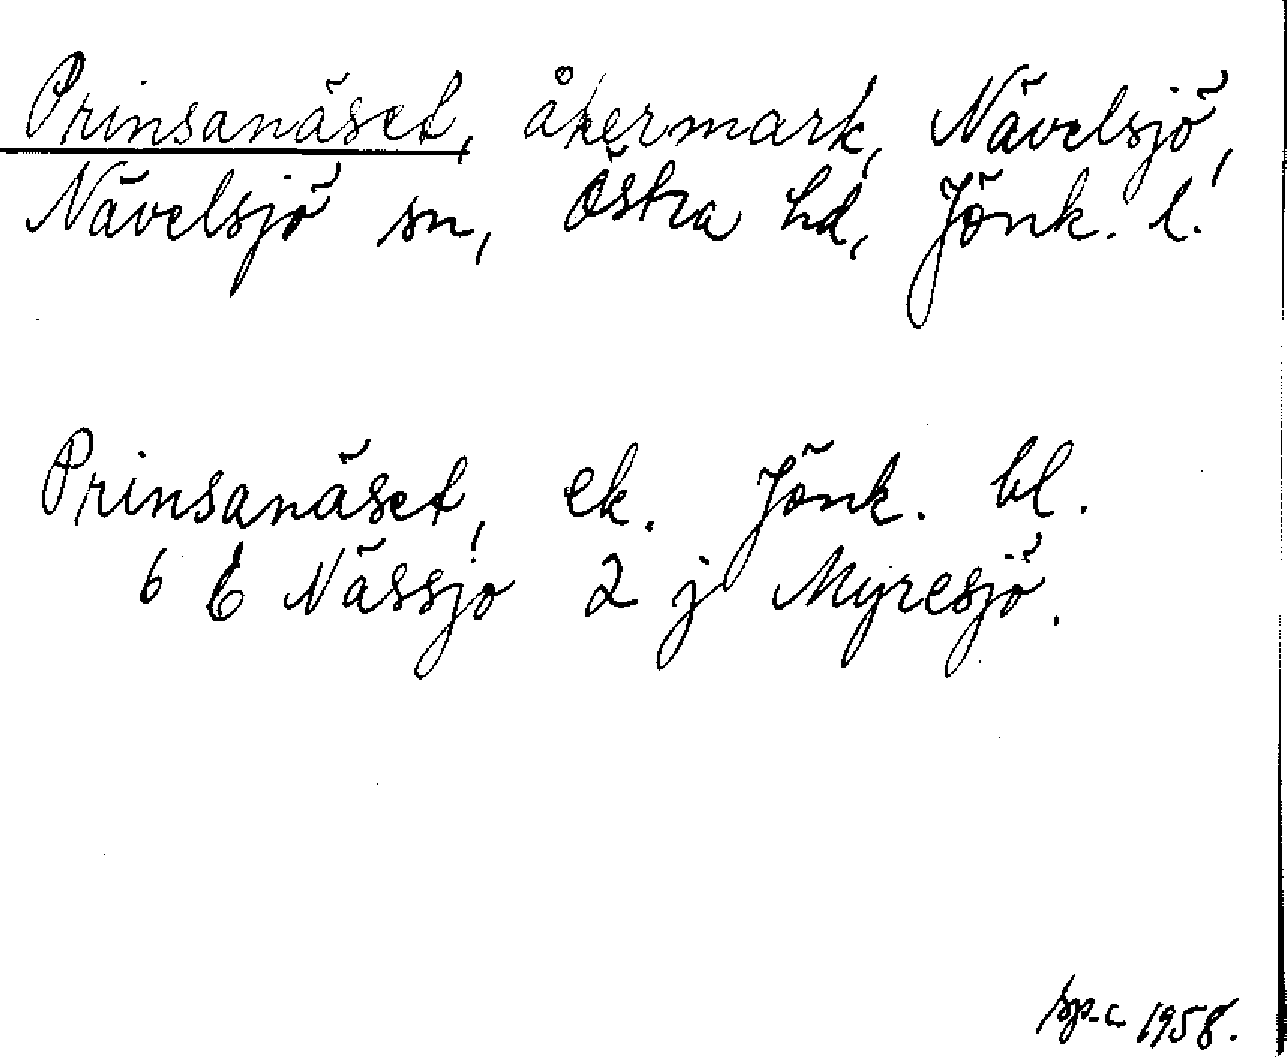 Prinsanäset, åkermark, Nävelsjö,
Nävelsjö sn, Östra hd, Jönk. l.
Prinsanäset, ek. Jönk. bl.
6 E Nässjö 2 j Myresjö.
sp-c 1958.